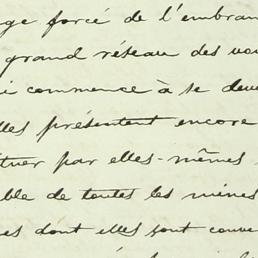 ge forcé de l'embran
grand réseau des vo
i commence à se deve
lles présentent encore
tuer par elles-mêmes
ble de toutes les mines
es dont elles sont couve